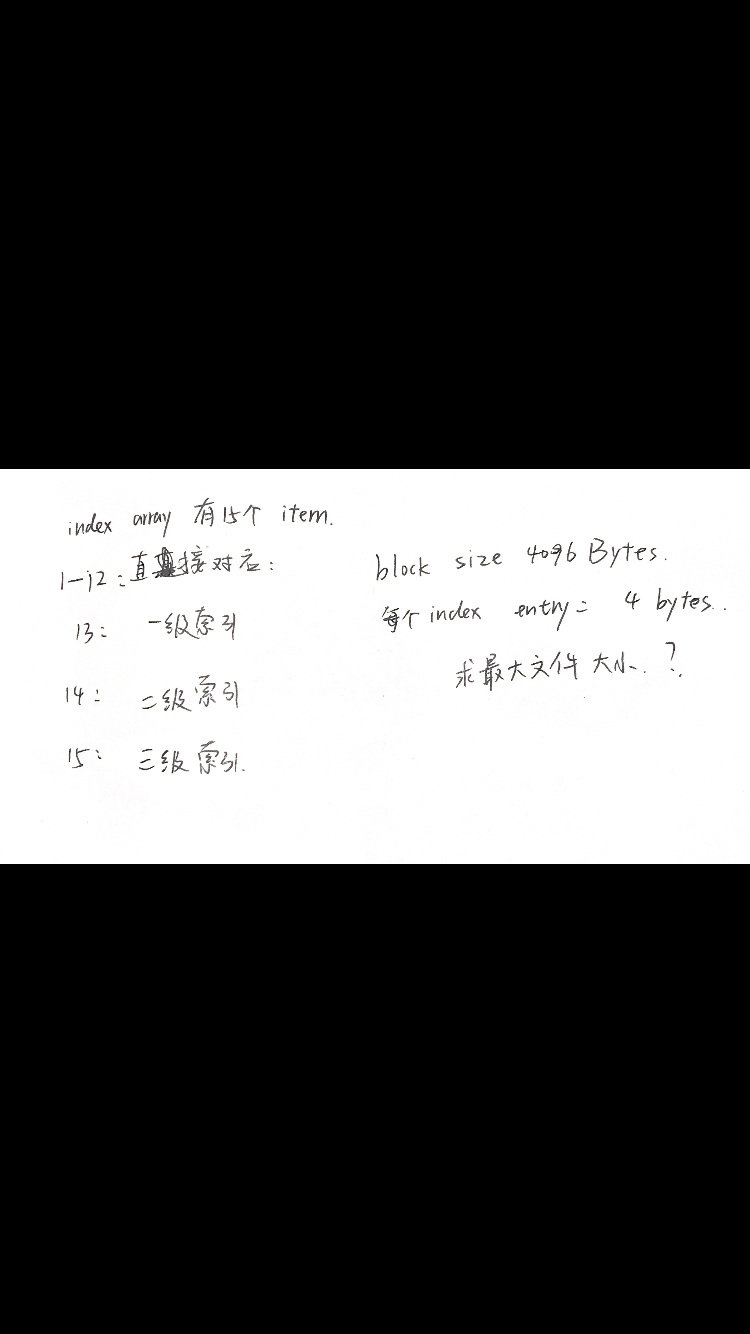 index array 有15个 item.
1-12: 直接对应:
13: 一级索引
14: 二级索引
15: 三级索引.
block size 4096 Bytes.
每个 index entry= 4 bytes.
求最大文件大小.?